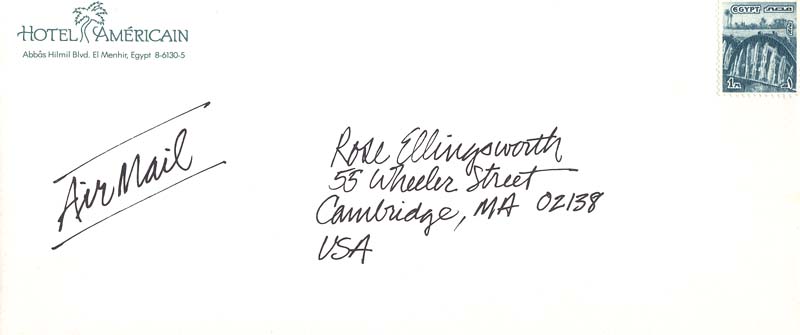 HOTEL AMÉRICAIN
Abbâs Hilmil Blvd. El Menhir, Egypt 8-6130-5
EGYPT مصر
1m ١
Air Mail
Rose Ellingsworth
55 Wheeler Street
Cambridge, MA 02138
USA